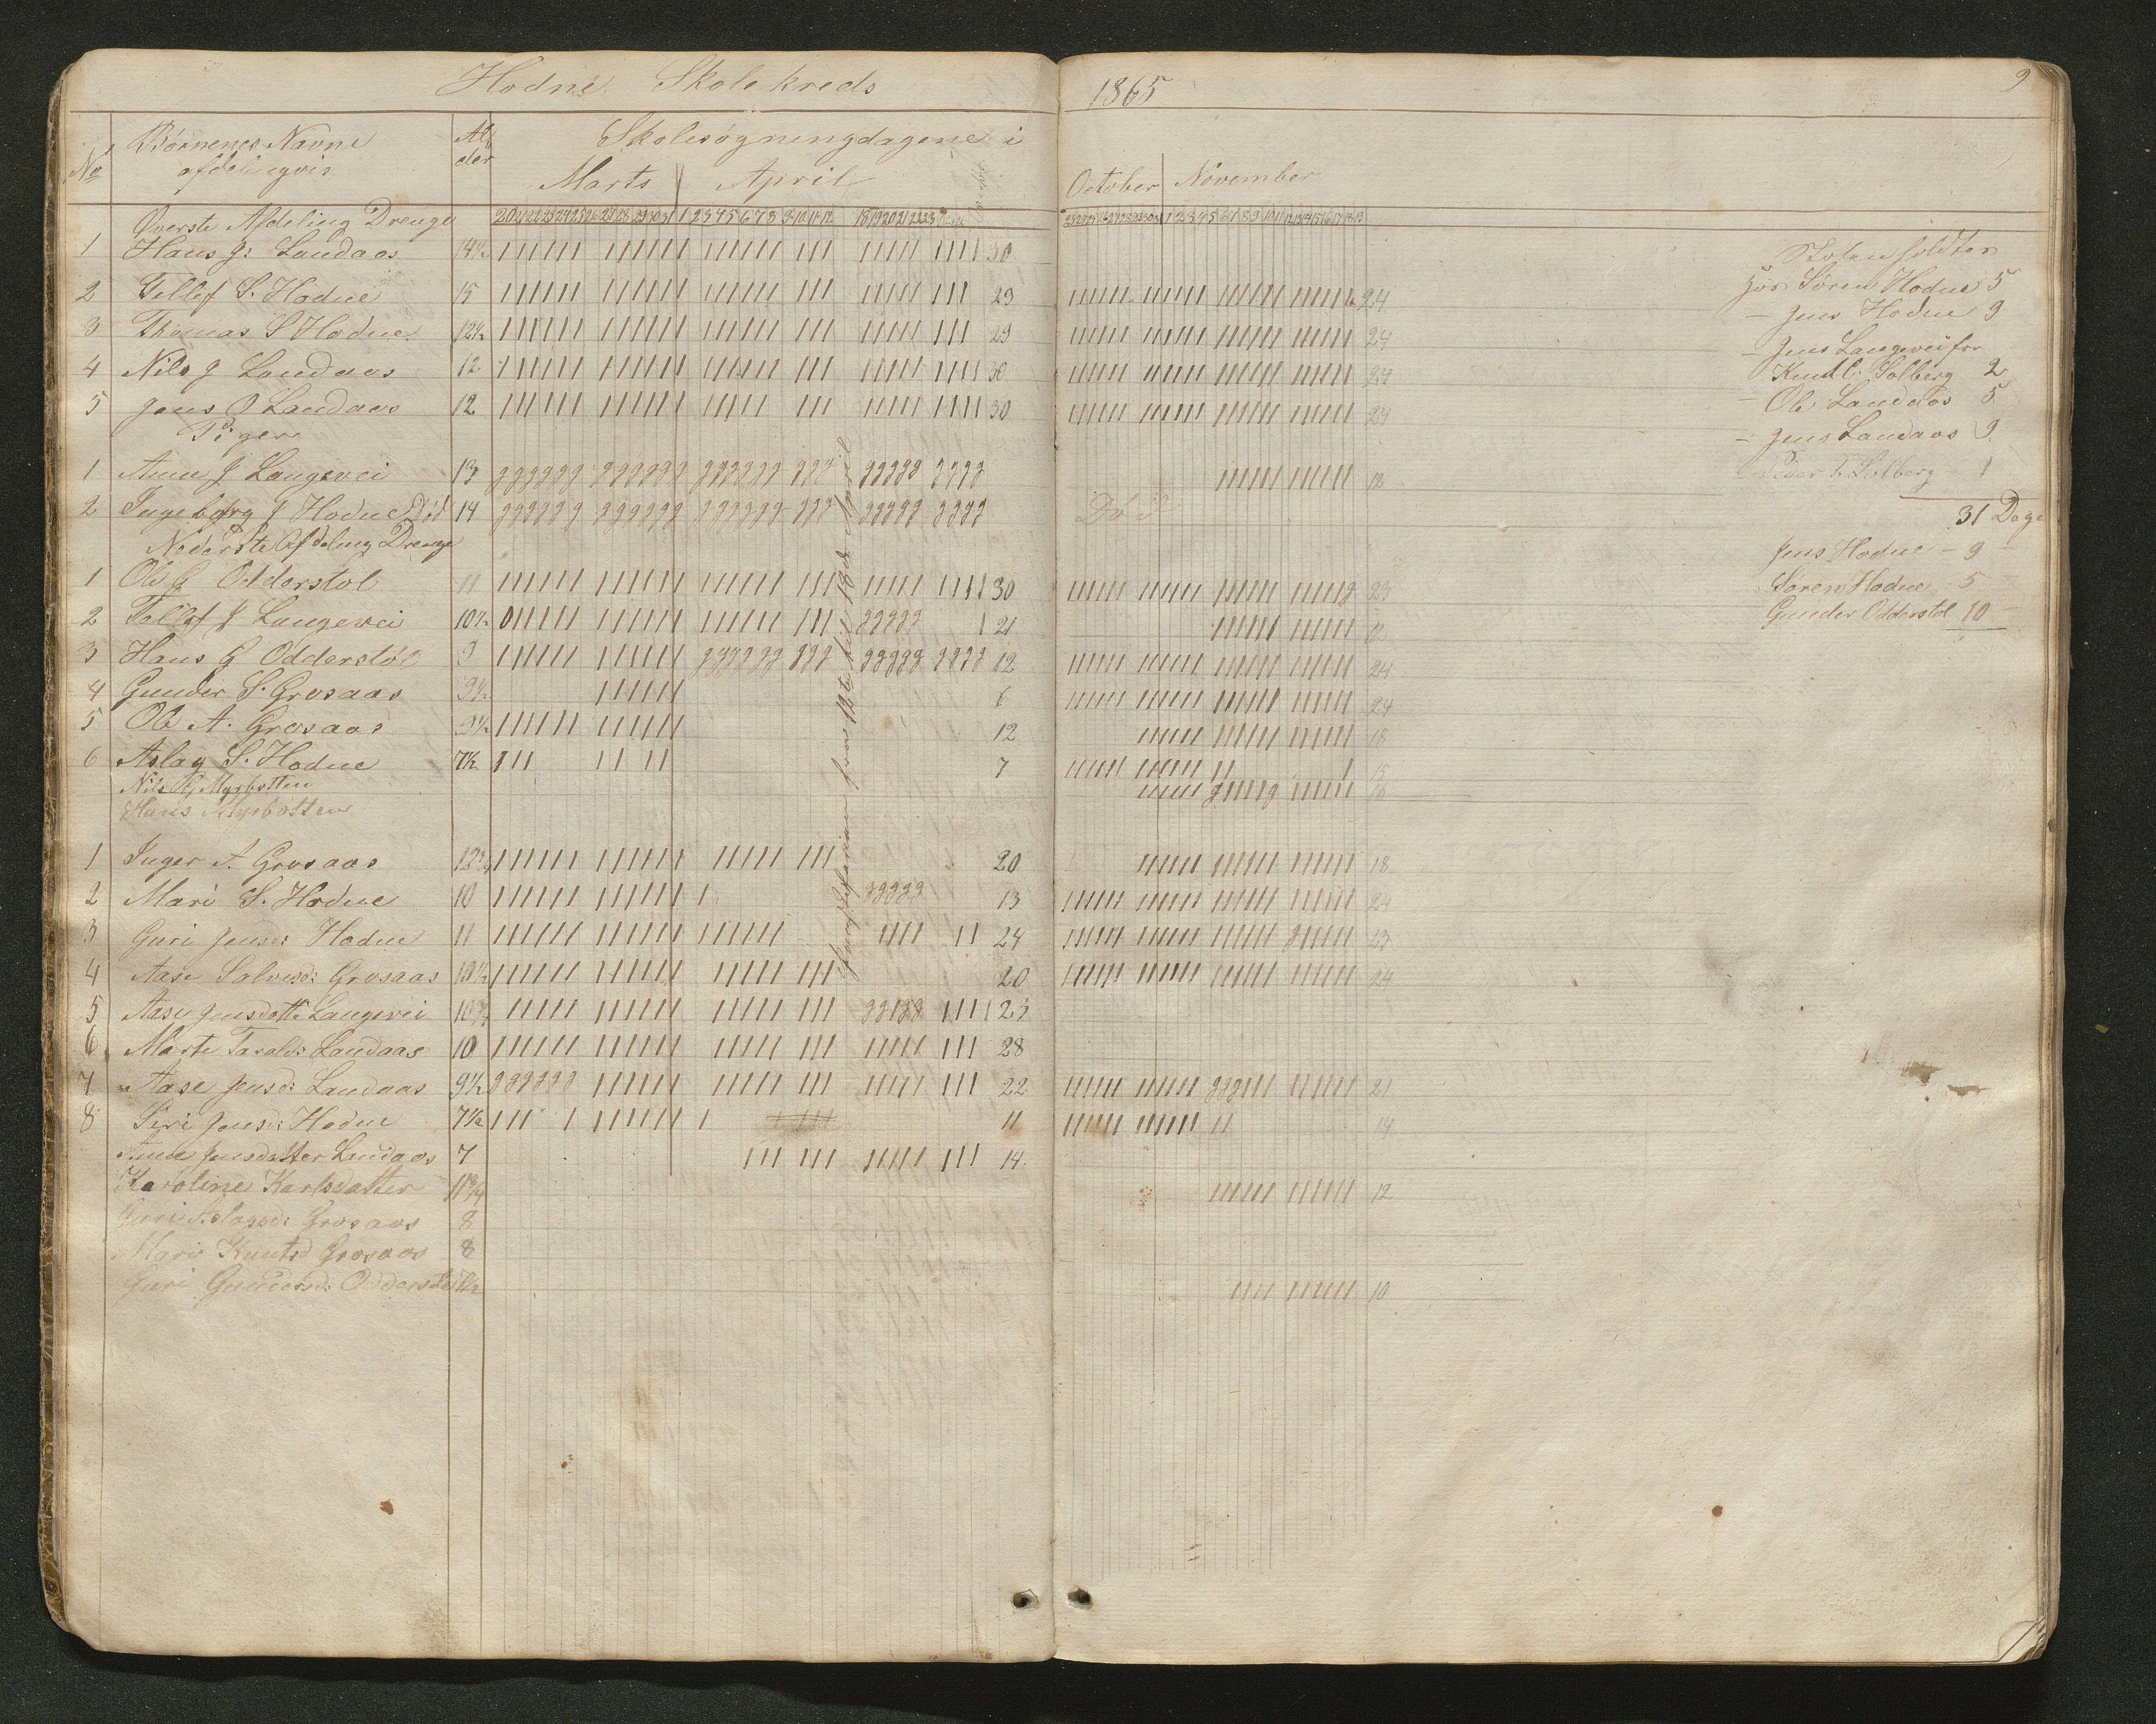 Hodne Skolekreds
1865
9
No
Børnenes Navne
afdelingvis
Alder
Skolesøgningdagene i
Marts April
October November
20 21 22 23 24 25 26 27 28 29 30 31 1 2 3 4 5 6 7 8 9 10 11 12 18 19 20 21 22 23
Øverste Afdeling Drenge
1 Hans J: Landaas 14½ 30
2 Tellef S. Hodne 15 29 24
3 Thomas S Hodne 12½ 29 24
4 Nils J Landaas 12 30 24
5 Jens O Landaas 12 30 24
Piger
1 Anne J Langevei 13 12
2 Ingeborg J Hodne Død 14 Død
Nederste Afdeling Drenge
1 Ole G Odderstøl 11 30 23
2 Tellef J Langevei 10½ 21 12
3 Hans G Odderstøl 9 12 24
4 Gunder S. Grosaas 9½ 6 24
5 Ole A. Grosaas 9½ 12 18
6 Aslag S. Hodne 7½ 7 15
Nils G Myrbotten 16
Hans Myrbotten
1 Inger A. Grosaas 12¾ 20 18
2 Mari S. Hodne 10 13 24
3 Guri Jensd: Hodne 11 24 23
4 Aase Salvesd: Grosaas 10½ 20 24
5 Aase Jensdatt: Langevei 10¾ 23
6 Marte Taralds: Landaas 10 28
7 Aase Jensd: Landaas 9½ 22 21
8 Siri Jensd: Hodne 7½ 11 14
Anne Jensdatter Landaas 7 14
Karoline Karlsdatter 11¾ 12
Guri Aslagsd: Grosaas 8
Mari Knutsd Grosaas 8
Guri Gundersd: Odderstøl 7½ 10
fra 12te til 18de April
Skolen holdtes
hos Søren Hodne 5
- Jens Hodne 9
- Jens Langevei for
Knut C. Solberg 2
- Ole Landaas 5
- Jens Landaas 9
- Peder T. Solberg - 1
31 Dage
Jens Hodne - 9 -
Søren Hodne - 5
Gunder Odderstøl 10 -